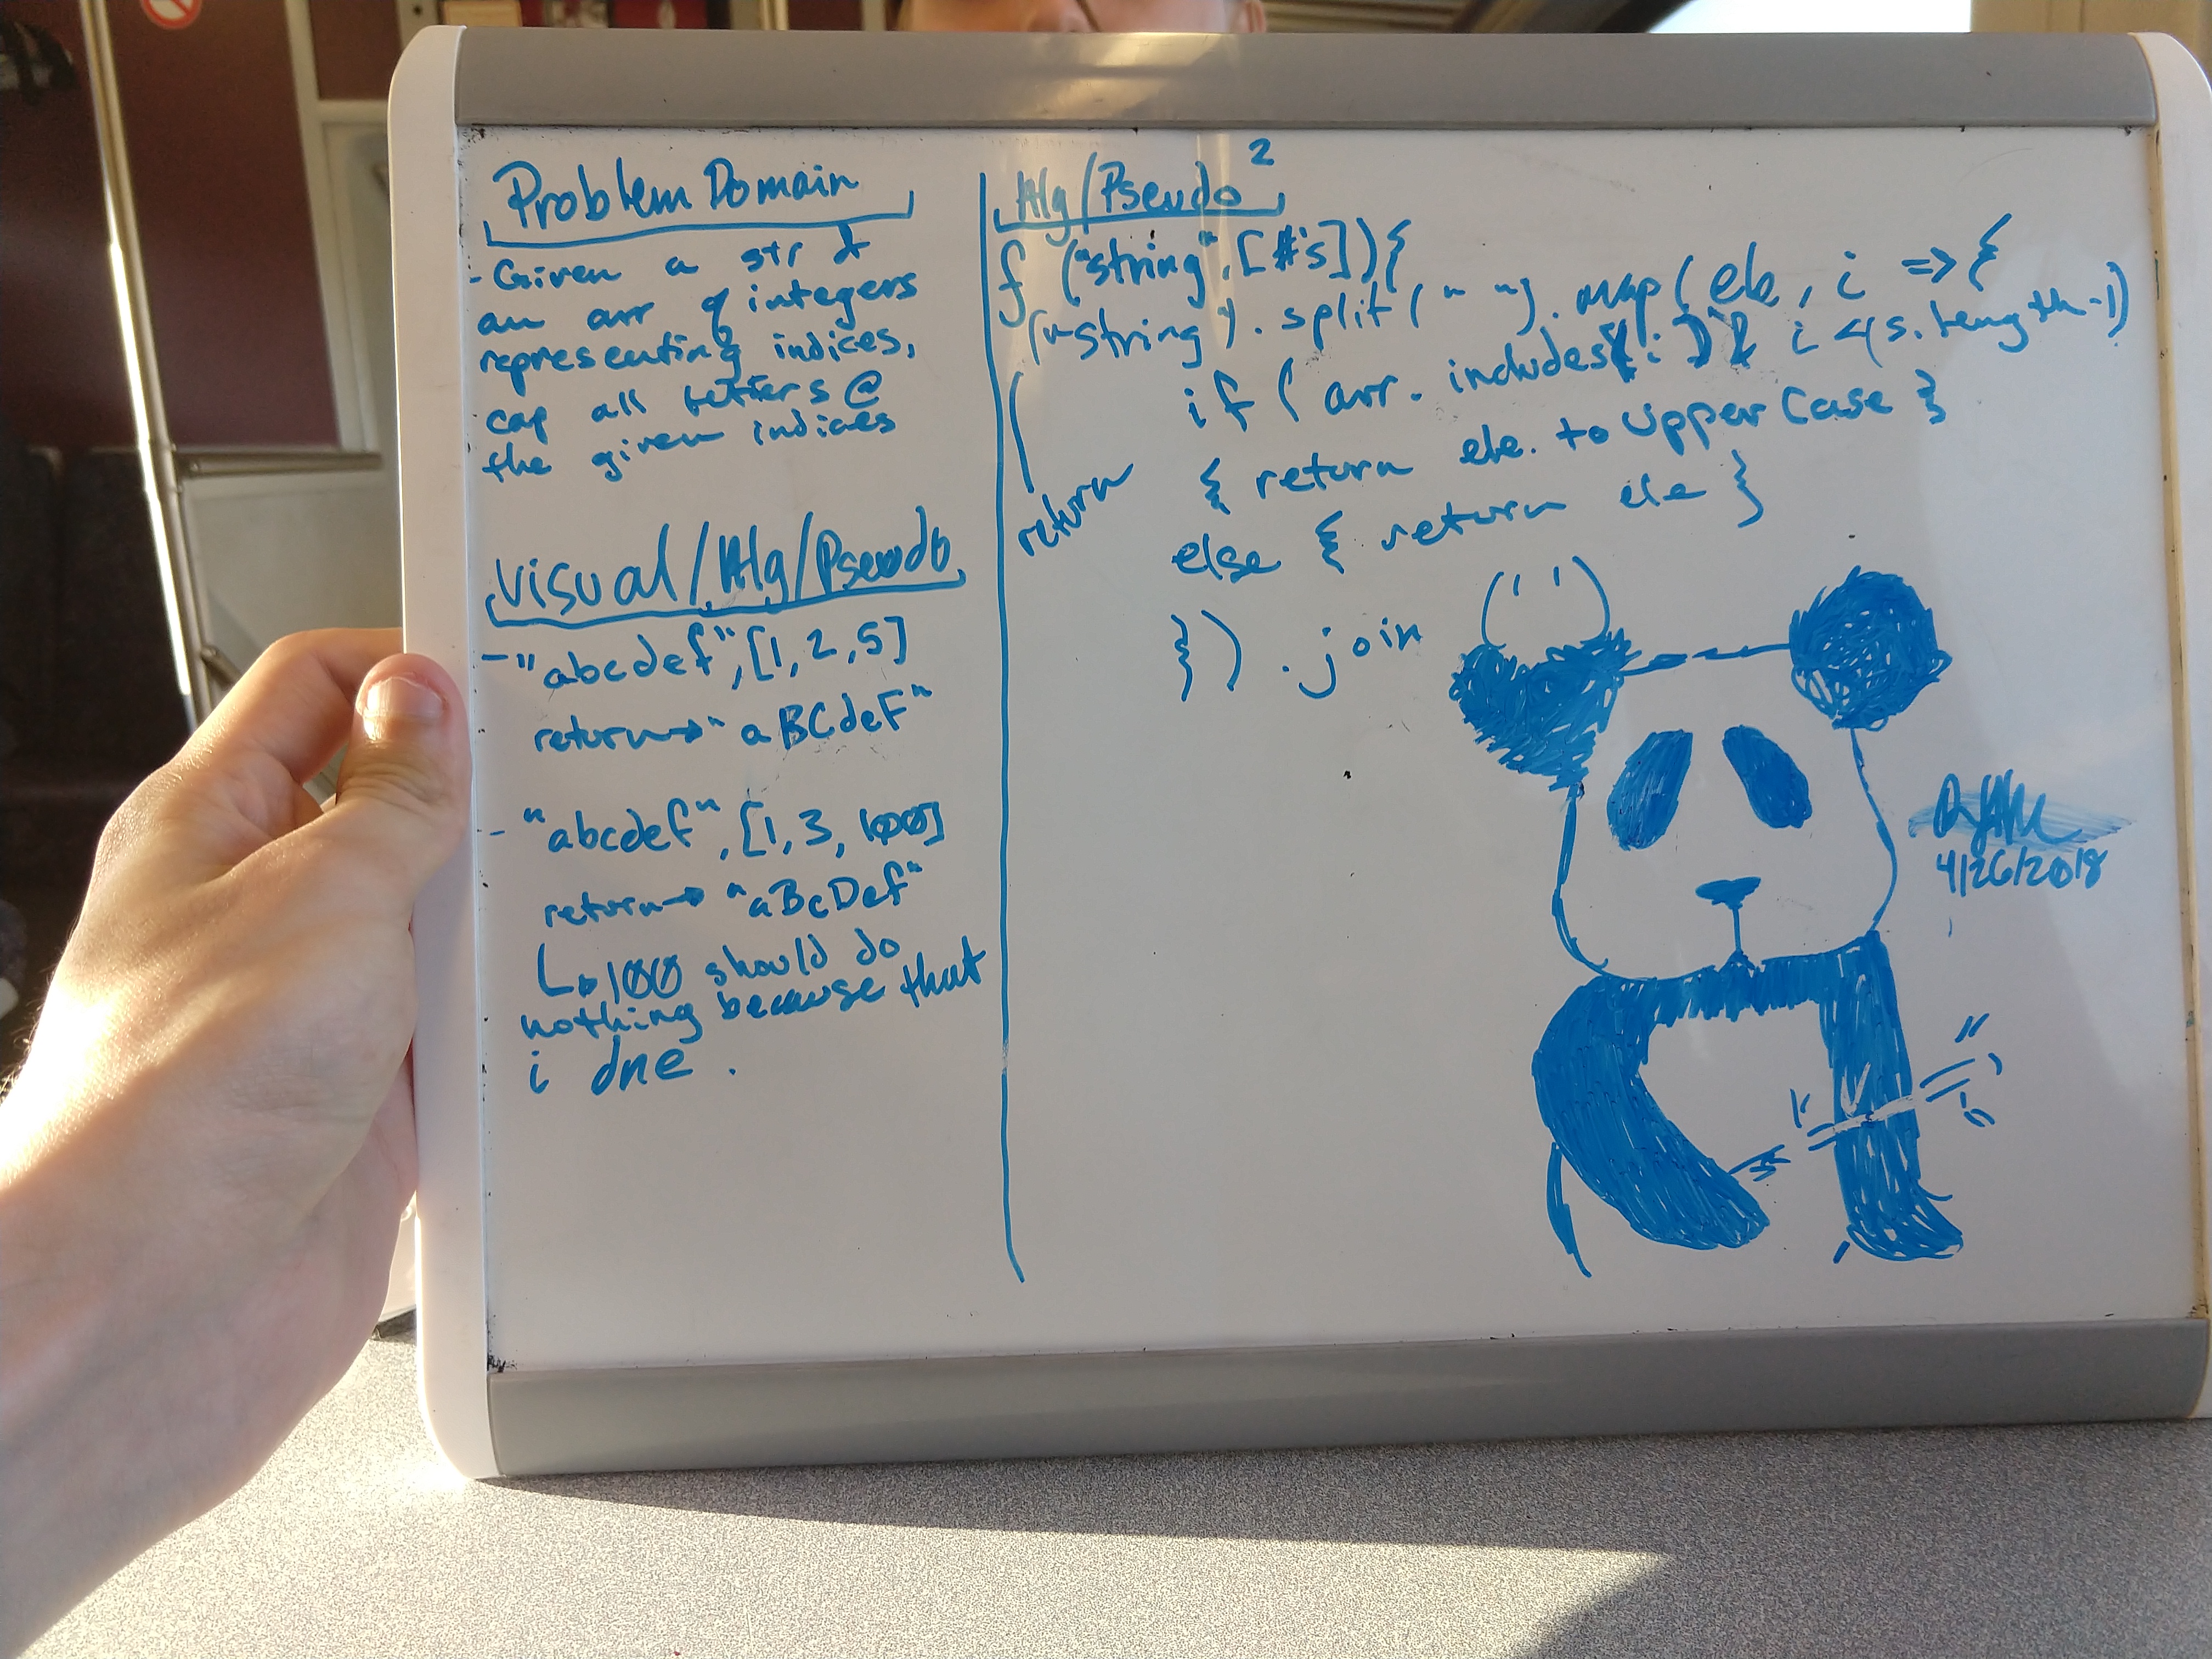 Problem Domain
- Given a str &
an arr of integers
representing indices,
cap all letters @
the given indices
Visual/Alg/Pseudo
- "abcdef", [1, 2, 5]
return → "aBCdeF"
- "abcdef", [1, 3, 100]
return → "aBcDef"
↳ 100 should do
nothing because that
i dne.
Alg/Pseudo 2
f ("string", [#'s]) {
("string").split(" ").map(ele, i => {
if (arr.includes(i) & i < (s.length-1)
{ return ele.toUpperCase }
return
else { return ele }
}) .join (' ')
4/26/2018